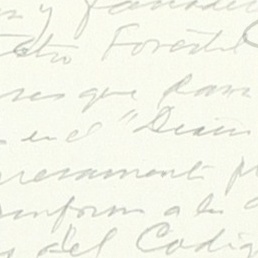 y ganader
stro Forestal
ses que dan
en el "Diario
presament
inform a la
s del Codig